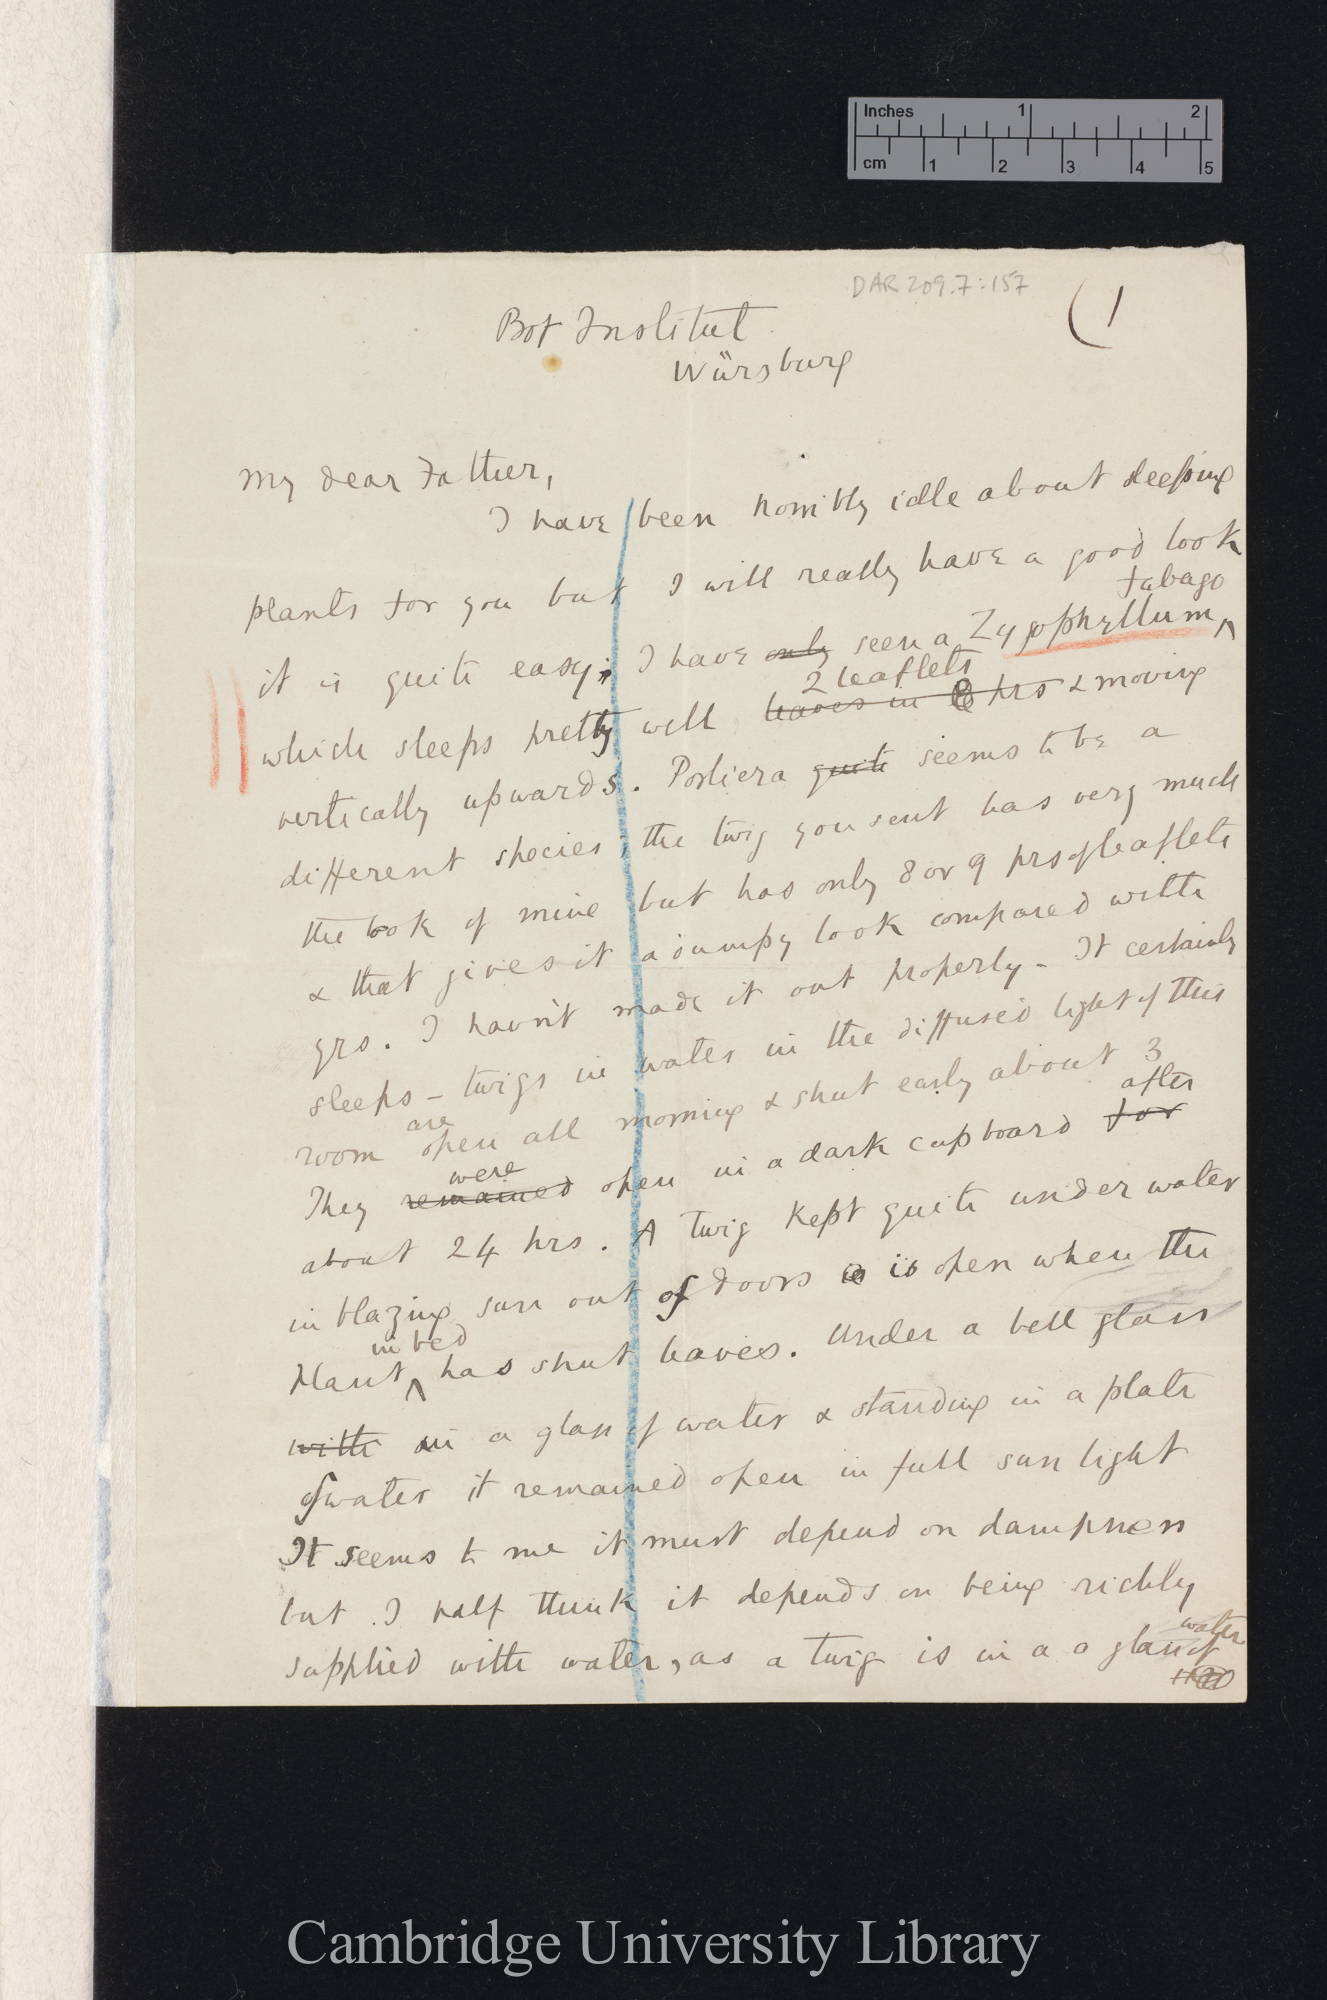 Inches 1 2
cm 1 2 3 4 5
DAR 209.7:157
(1
Bot Institut
Würsburg
My dear Father,
I have been horribly idle about sleeping
plants for you but I will really have a good look
tabago
it is quite easy; I have only seen a Zygophyllum
2 leaflets
which sleeps pretty well leaves in 8 hrs & moving
vertically upwards. Porliera quite seems to be a
different species; the twig you sent has very much
the look of mine but has only 8 or 9 prs of leaflets
& that gives it a jumpy look compared with
yrs. I havn't made it out properly - It certainly
sleeps - twigs in water in the diffused light of this
are
room open all morning & shut early about 3
were after
They remained open in a dark cupboard for
about 24 hrs. A twig kept quite under water
in blazing sun out of doors is is open when the
in bed
Plant has shut leaves. Under a bell glass
with in a glass of water & standing in a plate
of water it remained open in full sun light
It seems to me it must depend on dampness
but I half think it depends on being richly
water
supplied with water, as a twig is in a a glass of
Cambridge University Library